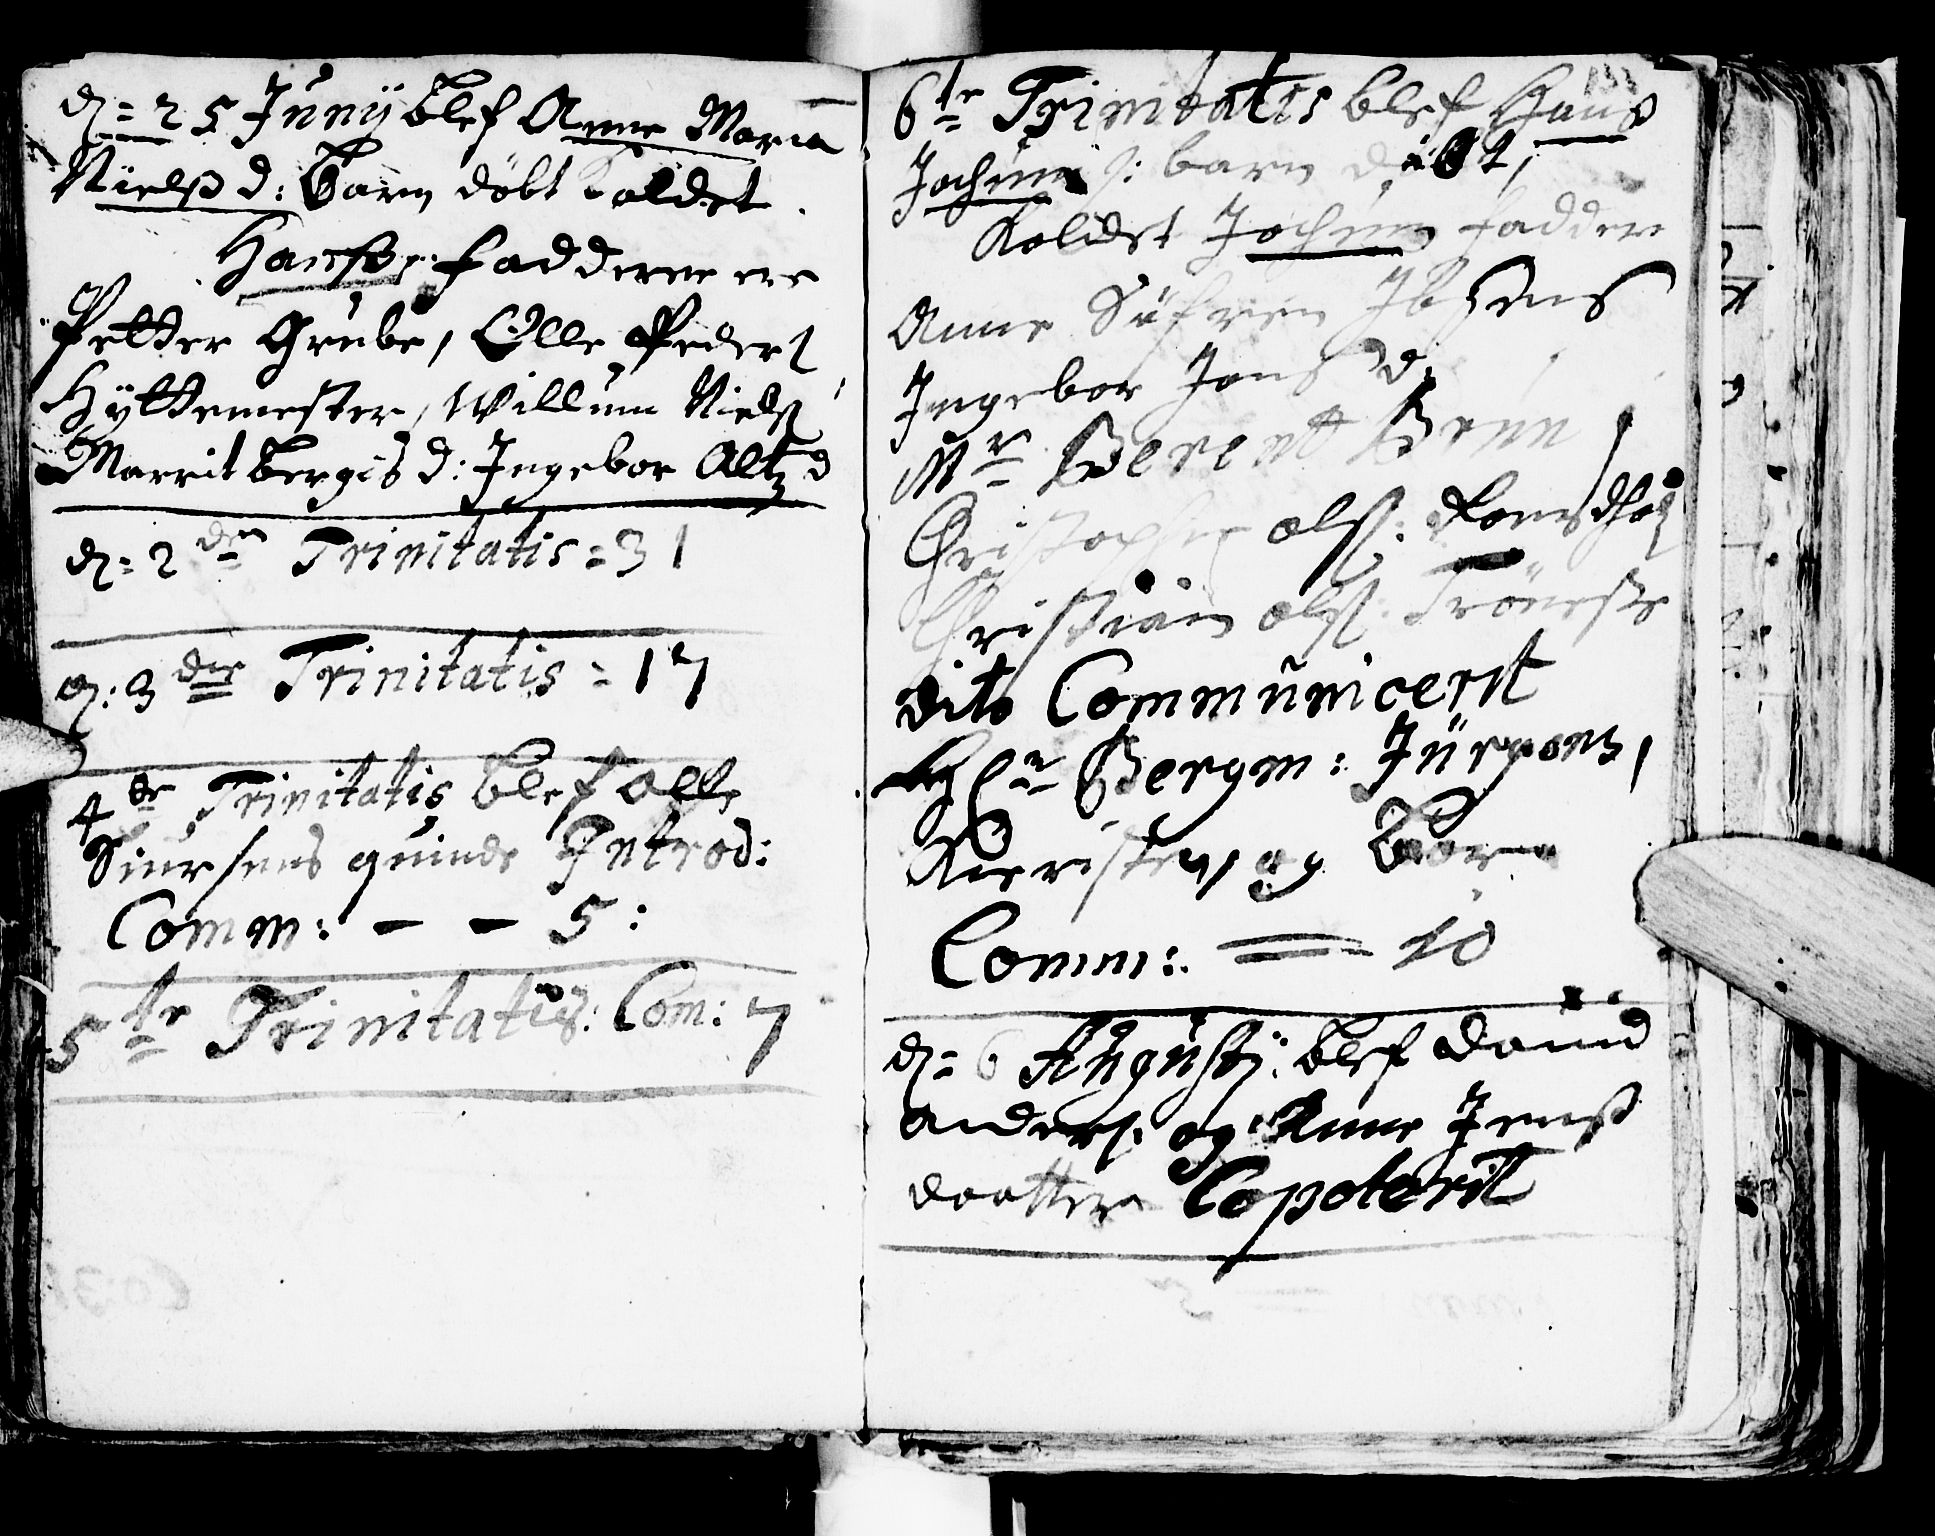 d: 25 Junÿ blef Anne Maria
Nielsß d: barn döbt Koldet
Hanß: fadderne ere
Petter Grube, Olle Peders
Hÿttemester, Willum Niels
Marrit bergis d: Ingebor Altz d
d: 2den Trinitatis = 31
d: 3der Trinitatis = 17
4de Trinitatis blef olle
Siursens quinde Introd:
Comm: — — 5:
5te Trinitatis: Com: 7
6te Trinitatis blef Hans
Jochum s: barn döbt,
Koldet Jochum faddere
Anne Süfren Ibsens
Ingebor Jens d:
Mr Berent Brun
Christopher ols:
Christian ols:
dito Communicerit
Bergm: Jürgens,
Kirristen, og
Comm: = 10
d: 6 Augustj: blef david
anders: og Anne Jenß
daatter Copolerit